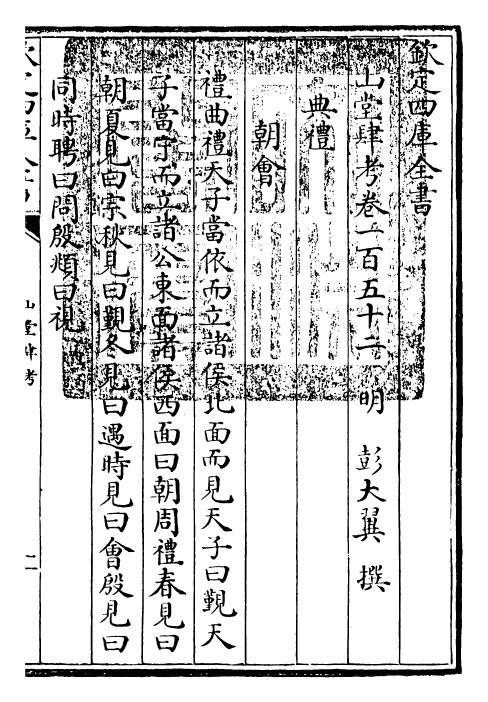 欽定四庫全書
山堂肆考卷一百五十二 明 彭大翼 撰
典禮
朝會
禮曲禮天子當依而立諸侯北面而見天子曰覲天
子當宁而立諸公東面諸侯西面曰朝周禮春見曰
朝夏見曰宗秋見曰覲冬見曰遇時見曰會殷見曰
同時聘曰問殷頫曰視
山堂肆考
二